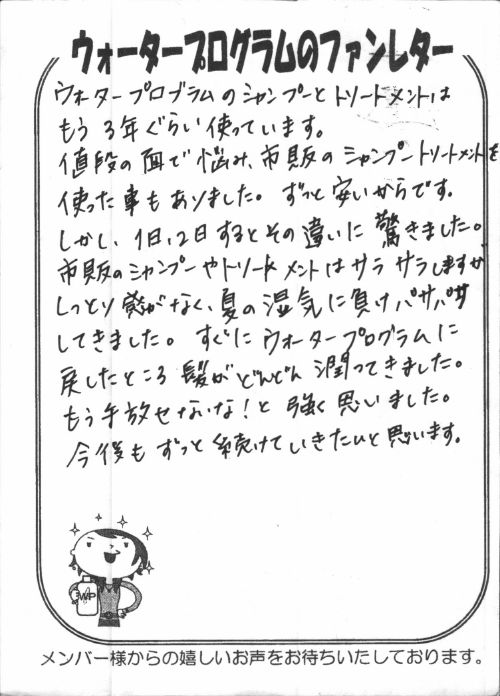 ウォータープログラムのファンレター
ウォータープログラムのシャンプーとトリートメントは
もう3年ぐらい使っています。
値段の面で悩み、市販のシャンプートリートメントを
使った事もありました。ずっと安いからです。
しかし、1日、2日するとその違いに驚きました。
市販のシャンプーやトリートメントはサラサラしますが
しっとり感がなく、夏の湿気に負けパサパサ
してきました。すぐにウォータープログラムに
戻したところ髪がどんどん潤ってきました。
もう手放せないな!と強く思いました。
今後もずっと続けていきたいと思います。
WP
メンバー様からの嬉しいお声をお待ちいたしております。